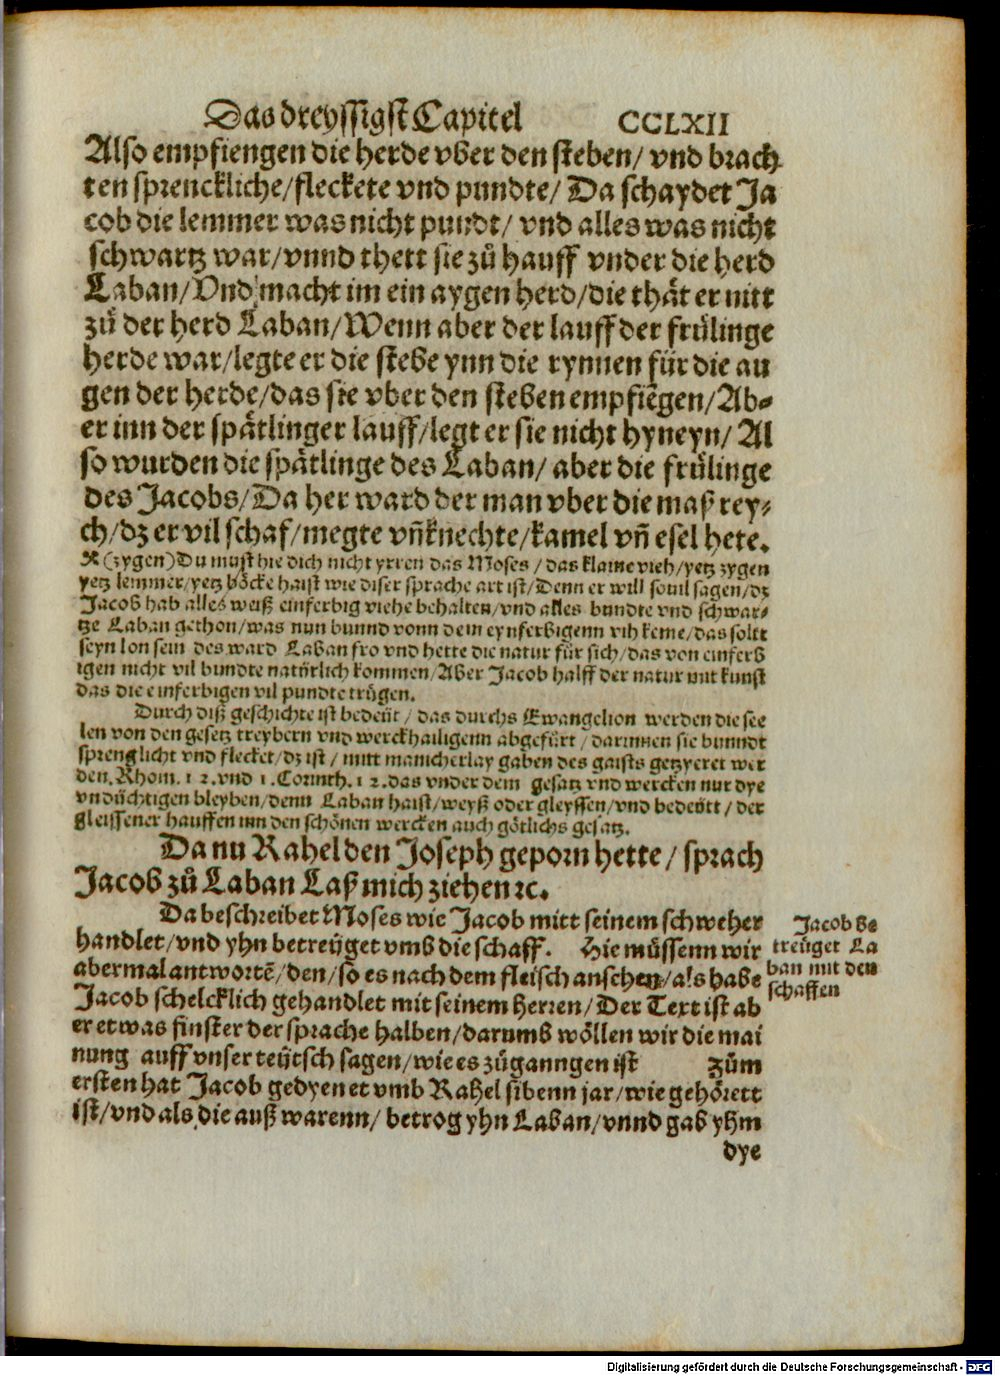 Das dreyssigst Capitel CCLXII
Also empfiengen die herde vber den steben/ vnd brach
ten sprenckliche/fleckete vnd pundte/ Da schaydet Ja
cob die lemmer was nicht pundt/ vnd alles was nicht
schwartz war/vnnd thett sie zů hauff vnder die herd
Laban/Vnd macht im ein aygen herd/die thåt er nitt
zů der herd Laban/Wenn aber der lauff der frůlinge
herde war/legte er die stebe ynn die rynnen für die au
gen der herde/das sie vber den steben empfiẽgen/Ab⸗
er inn der spåtlinger lauff/legt er sie nicht hyneyn/ Al
so wurden die spåtlinge des Laban/ aber die frůlinge
des Jacobs/Da her ward der man vber die maß rey⸗
ch/dz er vil schaf/megte vñ knechte/kamel vñ esel hete.
(zygen) Du must hie dich nicht yrren das Moses/das klaine vieh/yetz zygen
yetz lemmer/yetz böcke haist wie diser sprache art ist/Denn er will souil sagen/dz
Jacob hab alles weiß einferbig viehe behalten/vnd alles bundte vnd schwar⸗
tze Laban gethon/was nun bunnd vonn dem eynferbigenn vih keme/das sollt
seyn lon sein des ward Laban fro vnd hette die natur für sich/das von einferb
igen nicht vil bundte natürlich kommen/Aber Jacob halff der natur mit kunst
das die einferbigen vil pundte trůgen.
Durch diß geschichte ist bedeüt/ das durchs Ewangelion werden die see
len von den gesetz treybern vnd werckhailigenn abgefürt/darinnen sie bunndt
sprenglicht vnd flecket/dz ist/ mitt manicherlay gaben des gaists getzyeret wer
den. Rhom. 12. vnd 1. Corinth. 12. das vnder dem gesatz vnd wercken nur dye
vndüchtigen bleyben/denn Laban haist/weyß oder gleyssen/vnd bedeütt/der
gleissener hauffen inn den schönen wercken auch götlichs gesatz.
Da nu Rahel den Joseph geporn hette/ sprach
Jacob zů Laban Laß mich ziehen ꝛc.
Da beschreibet Moses wie Jacob mitt seinem schweher
handlet/vnd yhn betreüget vmb die schaff. Hie müssenn wir
abermal antwortẽ/den/so es nach dem fleisch ansehen/als habe
Jacob schelcklich gehandlet mit seinem Herren/Der Text ist ab
er etwas finster der sprache halben/darumb wöllen wir die mai
nung auff vnser teütsch sagen/wie es zůganngen ist Zům
ersten hat Jacob gedyenet vmb Rahel sibenn jar/wie gehörett
ist/vnd als die auß warenn/ betrog yhn Laban/vnnd gab yhm
dye
Jacob be
treüget La
ban mit den
schaffen
Digitalisierung gefördert durch die Deutsche Forschungsgemeinschaft - DFG